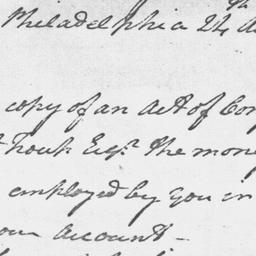 Philadelphia 24th
copy of an Act of Con
Esqr. the mone
employed by you in
our account —